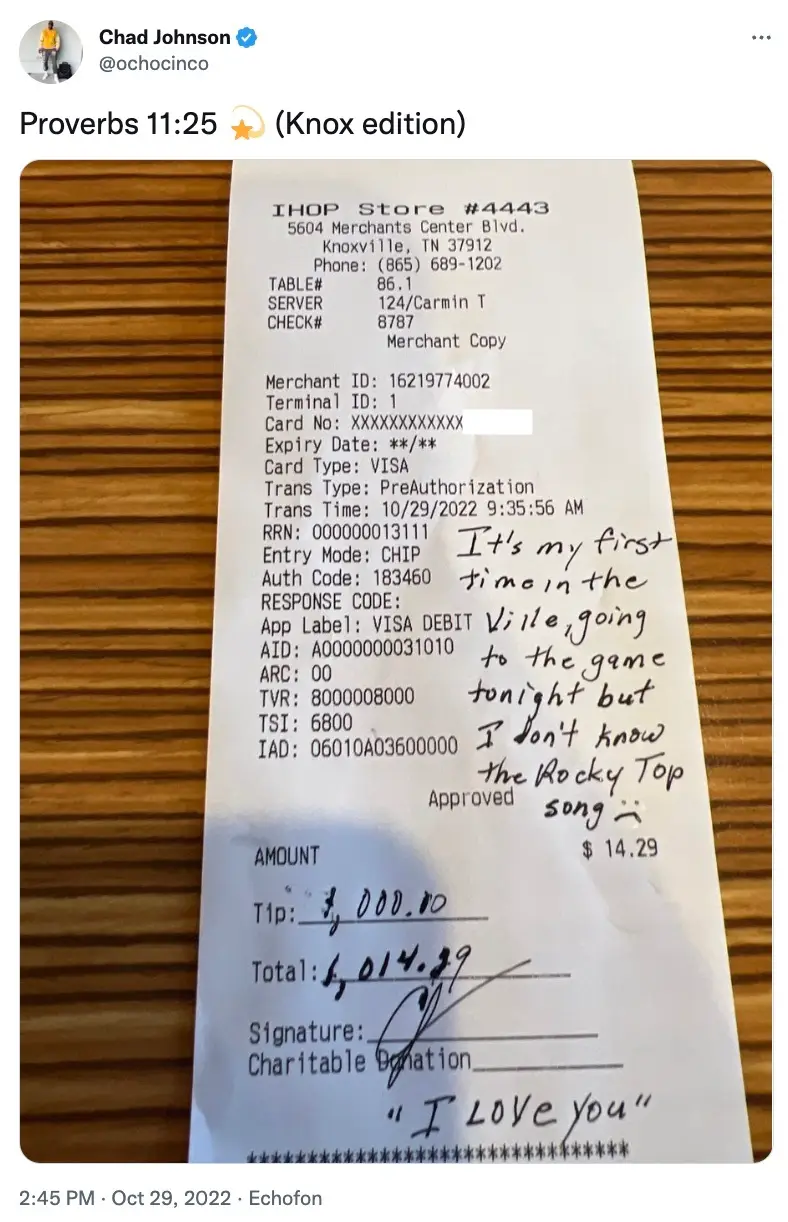 Chad Johnson
@ochocinco
Proverbs 11:25 💫 (Knox edition)
IHOP Store #4443
5604 Merchants Center Blvd.
Knoxville, TN 37912
Phone: (865) 689-1202
TABLE# 86.1
SERVER 124/Carmin T
CHECK# 8787
Merchant Copy
Merchant ID: 16219774002
Terminal ID: 1
Card No: XXXXXXXXXXXX
Expiry Date: **/**
Card Type: VISA
Trans Type: PreAuthorization
Trans Time: 10/29/2022 9:35:56 AM
RRN: 000000013111
Entry Mode: CHIP
Auth Code: 183460
RESPONSE CODE:
App Label: VISA DEBIT
AID: A0000000031010
ARC: 00
TVR: 8000008000
TSI: 6800
IAD: 06010A03600000
It's my first
time in the
Ville, going
to the game
tonight but
I don't know
the Rocky Top
song :(
Approved
AMOUNT $ 14.29
Tip: 1,000.00
Total: 1,014.29
Signature:
Charitable Donation
"I LOVE you"
*******************************
2:45 PM · Oct 29, 2022 · Echofon